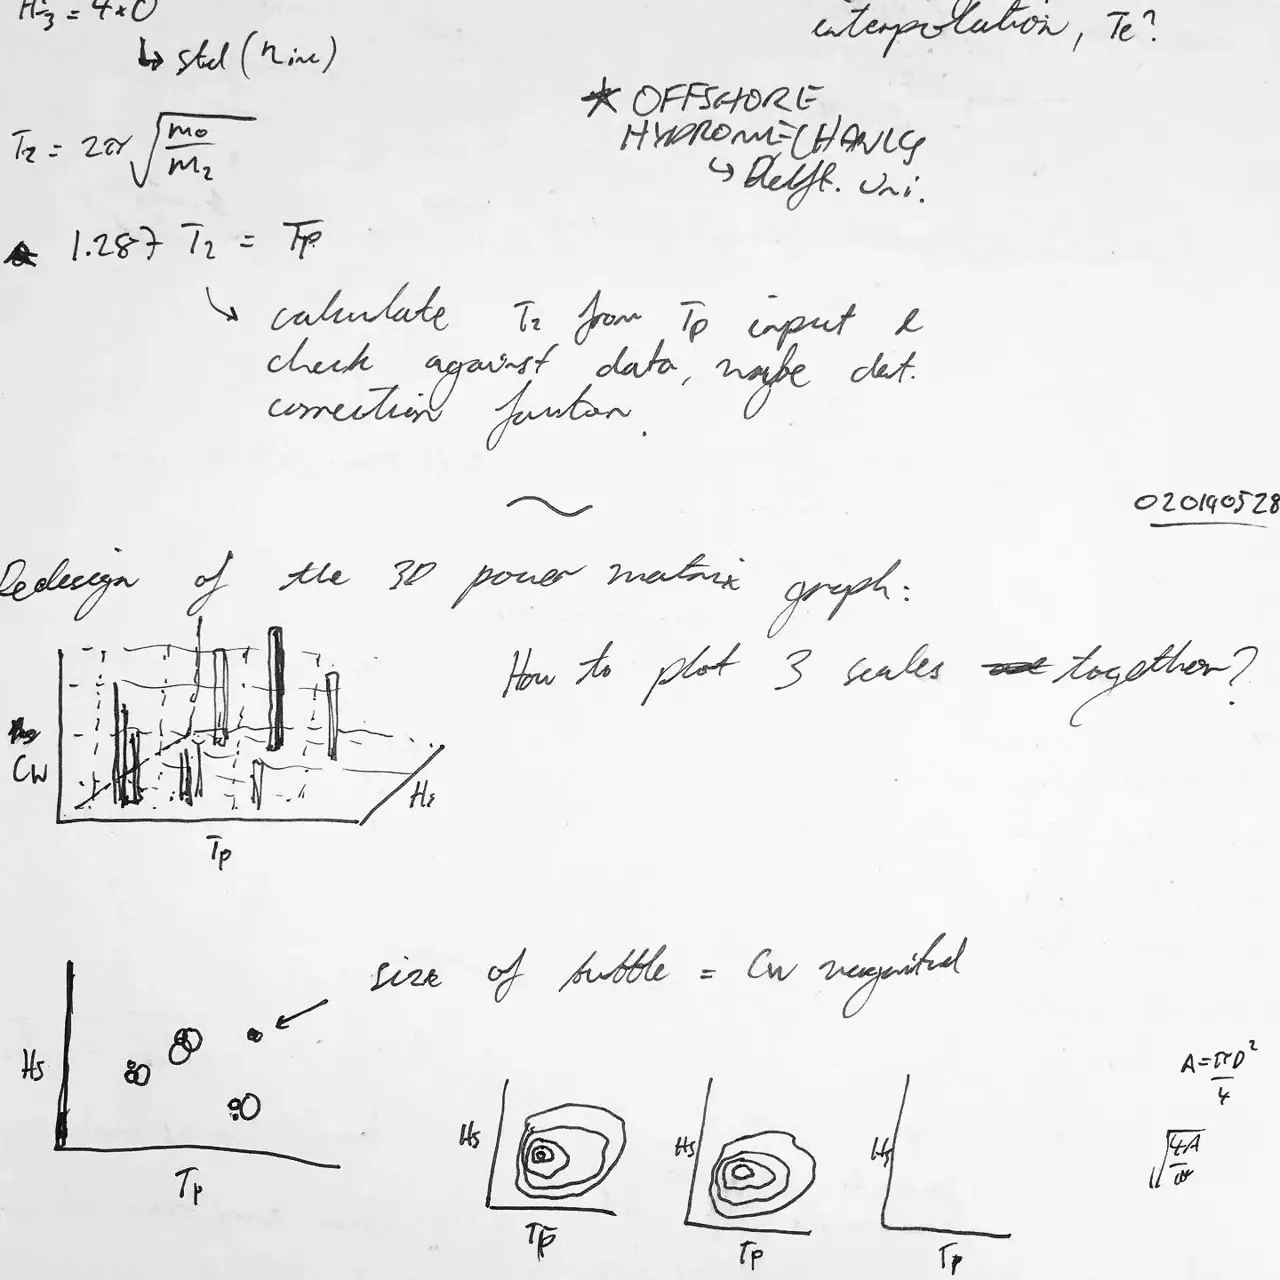 H⅓ = 4×σ
↳ std (ηinc)
interpolation, Te?
★ OFFSHORE
HYDROMECHANICS
↳ Delft. Uni.
T₂ = 2π √(m₀/m₂)
1.287 T₂ = Tp
calculate T₂ from Tp input &
check against data, maybe det.
correction function.
~
020190528
Redesign of the 3D power matrix graph:
How to plot 3 scales together?
Cw
Hs
Tp
size of bubble = Cw magnitud
Hs
Tp
A = πD²/4
Hs
Hs
Hs
√(4A/π)
Tp
Tp
Tp